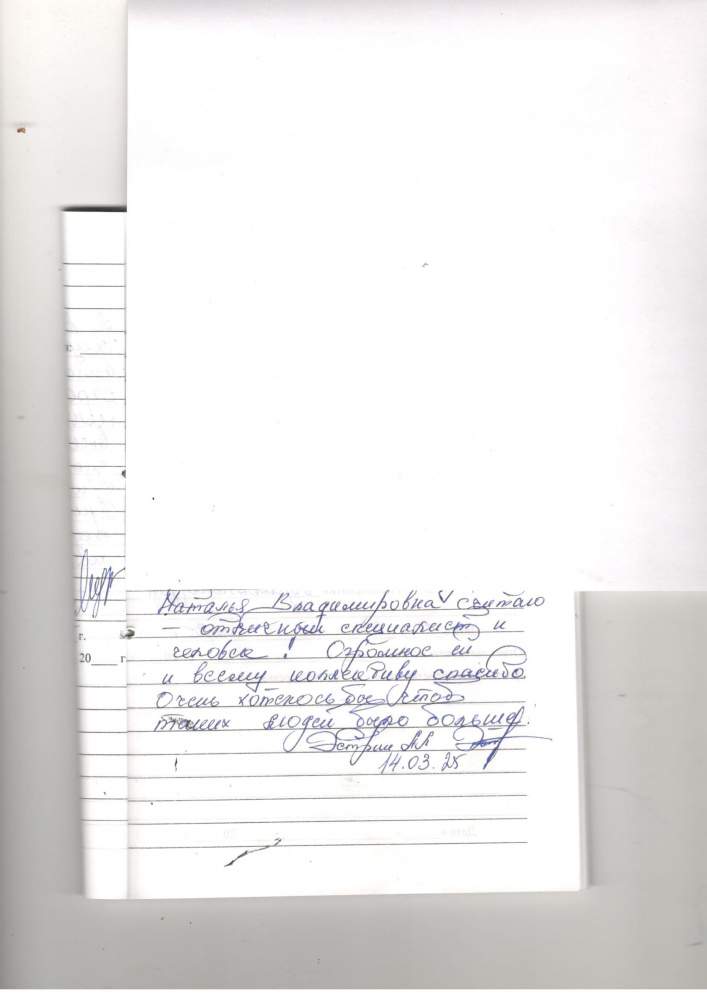 г.
Наталья Владимировна считаю
— отличный специалист и
человек! Огромное ей
и всему коллективу спасибо
Очень хотелось бы чтоб
таких людей было больше!
14.03.25
г.
20____ г